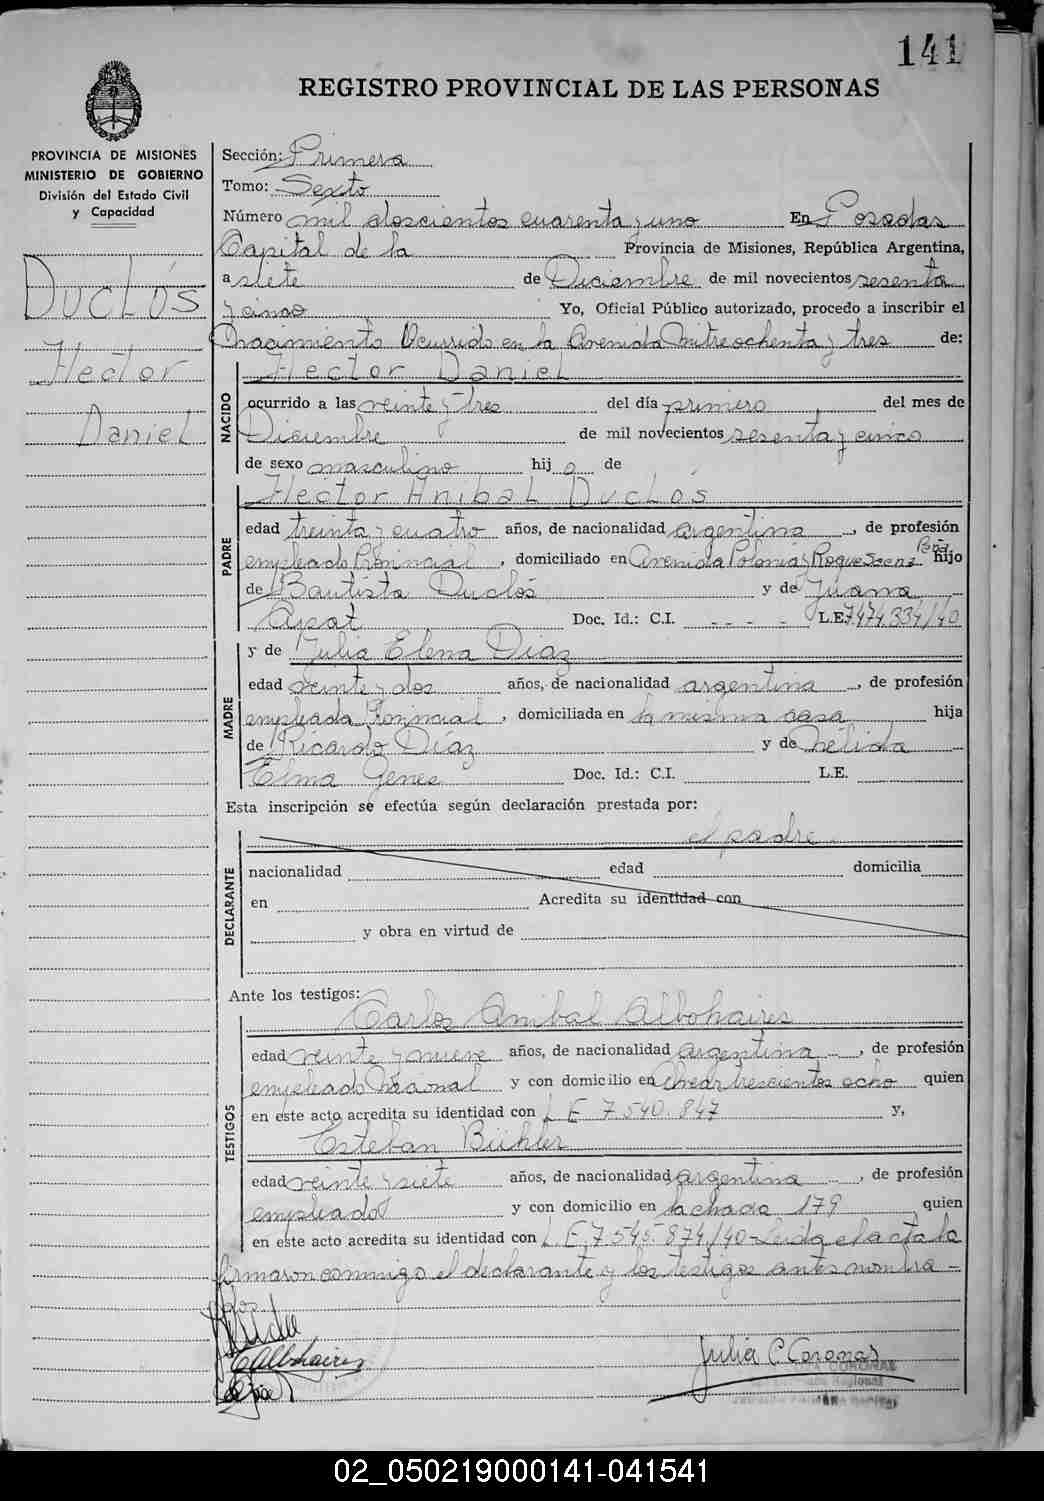 141
REGISTRO PROVINCIAL DE LAS PERSONAS
PROVINCIA DE MISIONES
MINISTERIO DE GOBIERNO
División del Estado Civil
y Capacidad
DUCLÓS
Hector
Daniel
Sección: Primera
Tomo: Sexto
Número mil doscientos cuarenta y uno En Posadas
Capital de la Provincia de Misiones, República Argentina,
a siete de Diciembre de mil novecientos sesenta
y cinco Yo, Oficial Público autorizado, procedo a inscribir el
nacimiento Ocurrido en la Avenida Mitre ochenta y tres de:
NACIDO
Hector Daniel
ocurrido a las veinte y tres del día primero del mes de
Diciembre de mil novecientos sesenta y cinco
de sexo masculino hijo de
PADRE
Hector Anibal Duclós
edad treinta y cuatro años, de nacionalidad argentina, de profesión
empleado Provincial, domiciliado en Avenida Polonia y Roque Saenz Peña hijo
de Bautista Duclós y de Juana
Doc. Id.: C.I. - - - - L.E. 7.474.334/40
MADRE
y de Julia Elena Diaz
edad veinte y dos años, de nacionalidad argentina, de profesión
empleada Provincial, domiciliada en la misma casa hija
de Ricardo Díaz y de Nelida
Elma Genes Doc. Id.: C.I. L.E.
Esta inscripción se efectúa según declaración prestada por:
el padre
DECLARANTE
nacionalidad edad domicilia
en Acredita su identidad con
y obra en virtud de
Ante los testigos:
TESTIGOS
Carlos Anibal Albohaires
edad veinte y nueve años, de nacionalidad argentina, de profesión
empleado Nacional y con domicilio en trescientos ocho quien
en este acto acredita su identidad con L E 7.540.847 y,
Esteban Bühler
edad veinte y siete años, de nacionalidad argentina, de profesión
empleado y con domicilio en Lachada 179 quien
en este acto acredita su identidad con L.E. 7.545.874/40- Leida el acta la
firmaron conmigo el declarante y los testigos antes nombra-
dos
CAlbohaires
Julia C. Coronas
CORONAS
02_050219000141-041541